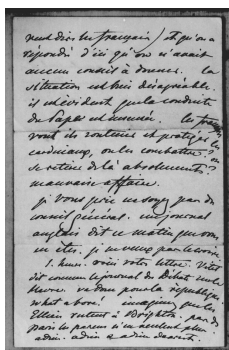 veut dire les français) et qu'on a
répondu d'ici qu'on n'avait
aucun conseil à donner. la
situation est bien désagréable.
il est évident que la conduite
du Pape est insensée. les français
vont ils soutenir et protéger les
cardinaux, ou les combattre? ou
se retirer de là absolument?
mauvaise affaire.
je vous prie ne soyez pas du
conseil général. un journal
anglais dit ce matin que vous
en êtes. je ne veux pas le croire.
1. heure. voici votre lettre. Vitet
dit comme le journal des Débats
pour la république
what a bore! imaginez que les
restent à Brighton. pas de
Paris les parens n'en veulent plus.
adieu. adieu